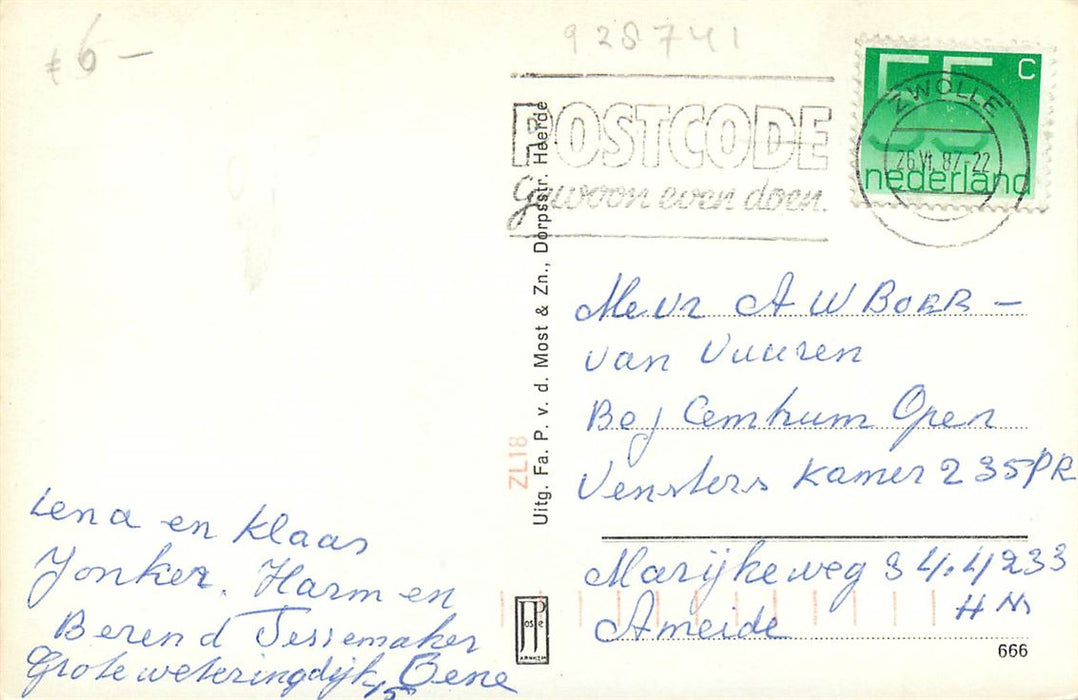 €6 –
928741
POSTCODE
Gewoon even doen.
55 c
nederland
ZWOLLE
26.VI.87-22
Mevr A W Boer –
van Vuuren
Bej Cemtrum Open
Vensters Kamer 235PR
Marijkeweg 34.4233
HM
Ameide
Lena en Klaas
Yonker. Harm en
Berend Tessemaker
Grote weteringdijk Bene
15
Uitg. Fa. P. v. d. Most & Zn., Dorpsstr. Heerde
ZL18
JosPé
ARNHEM
666